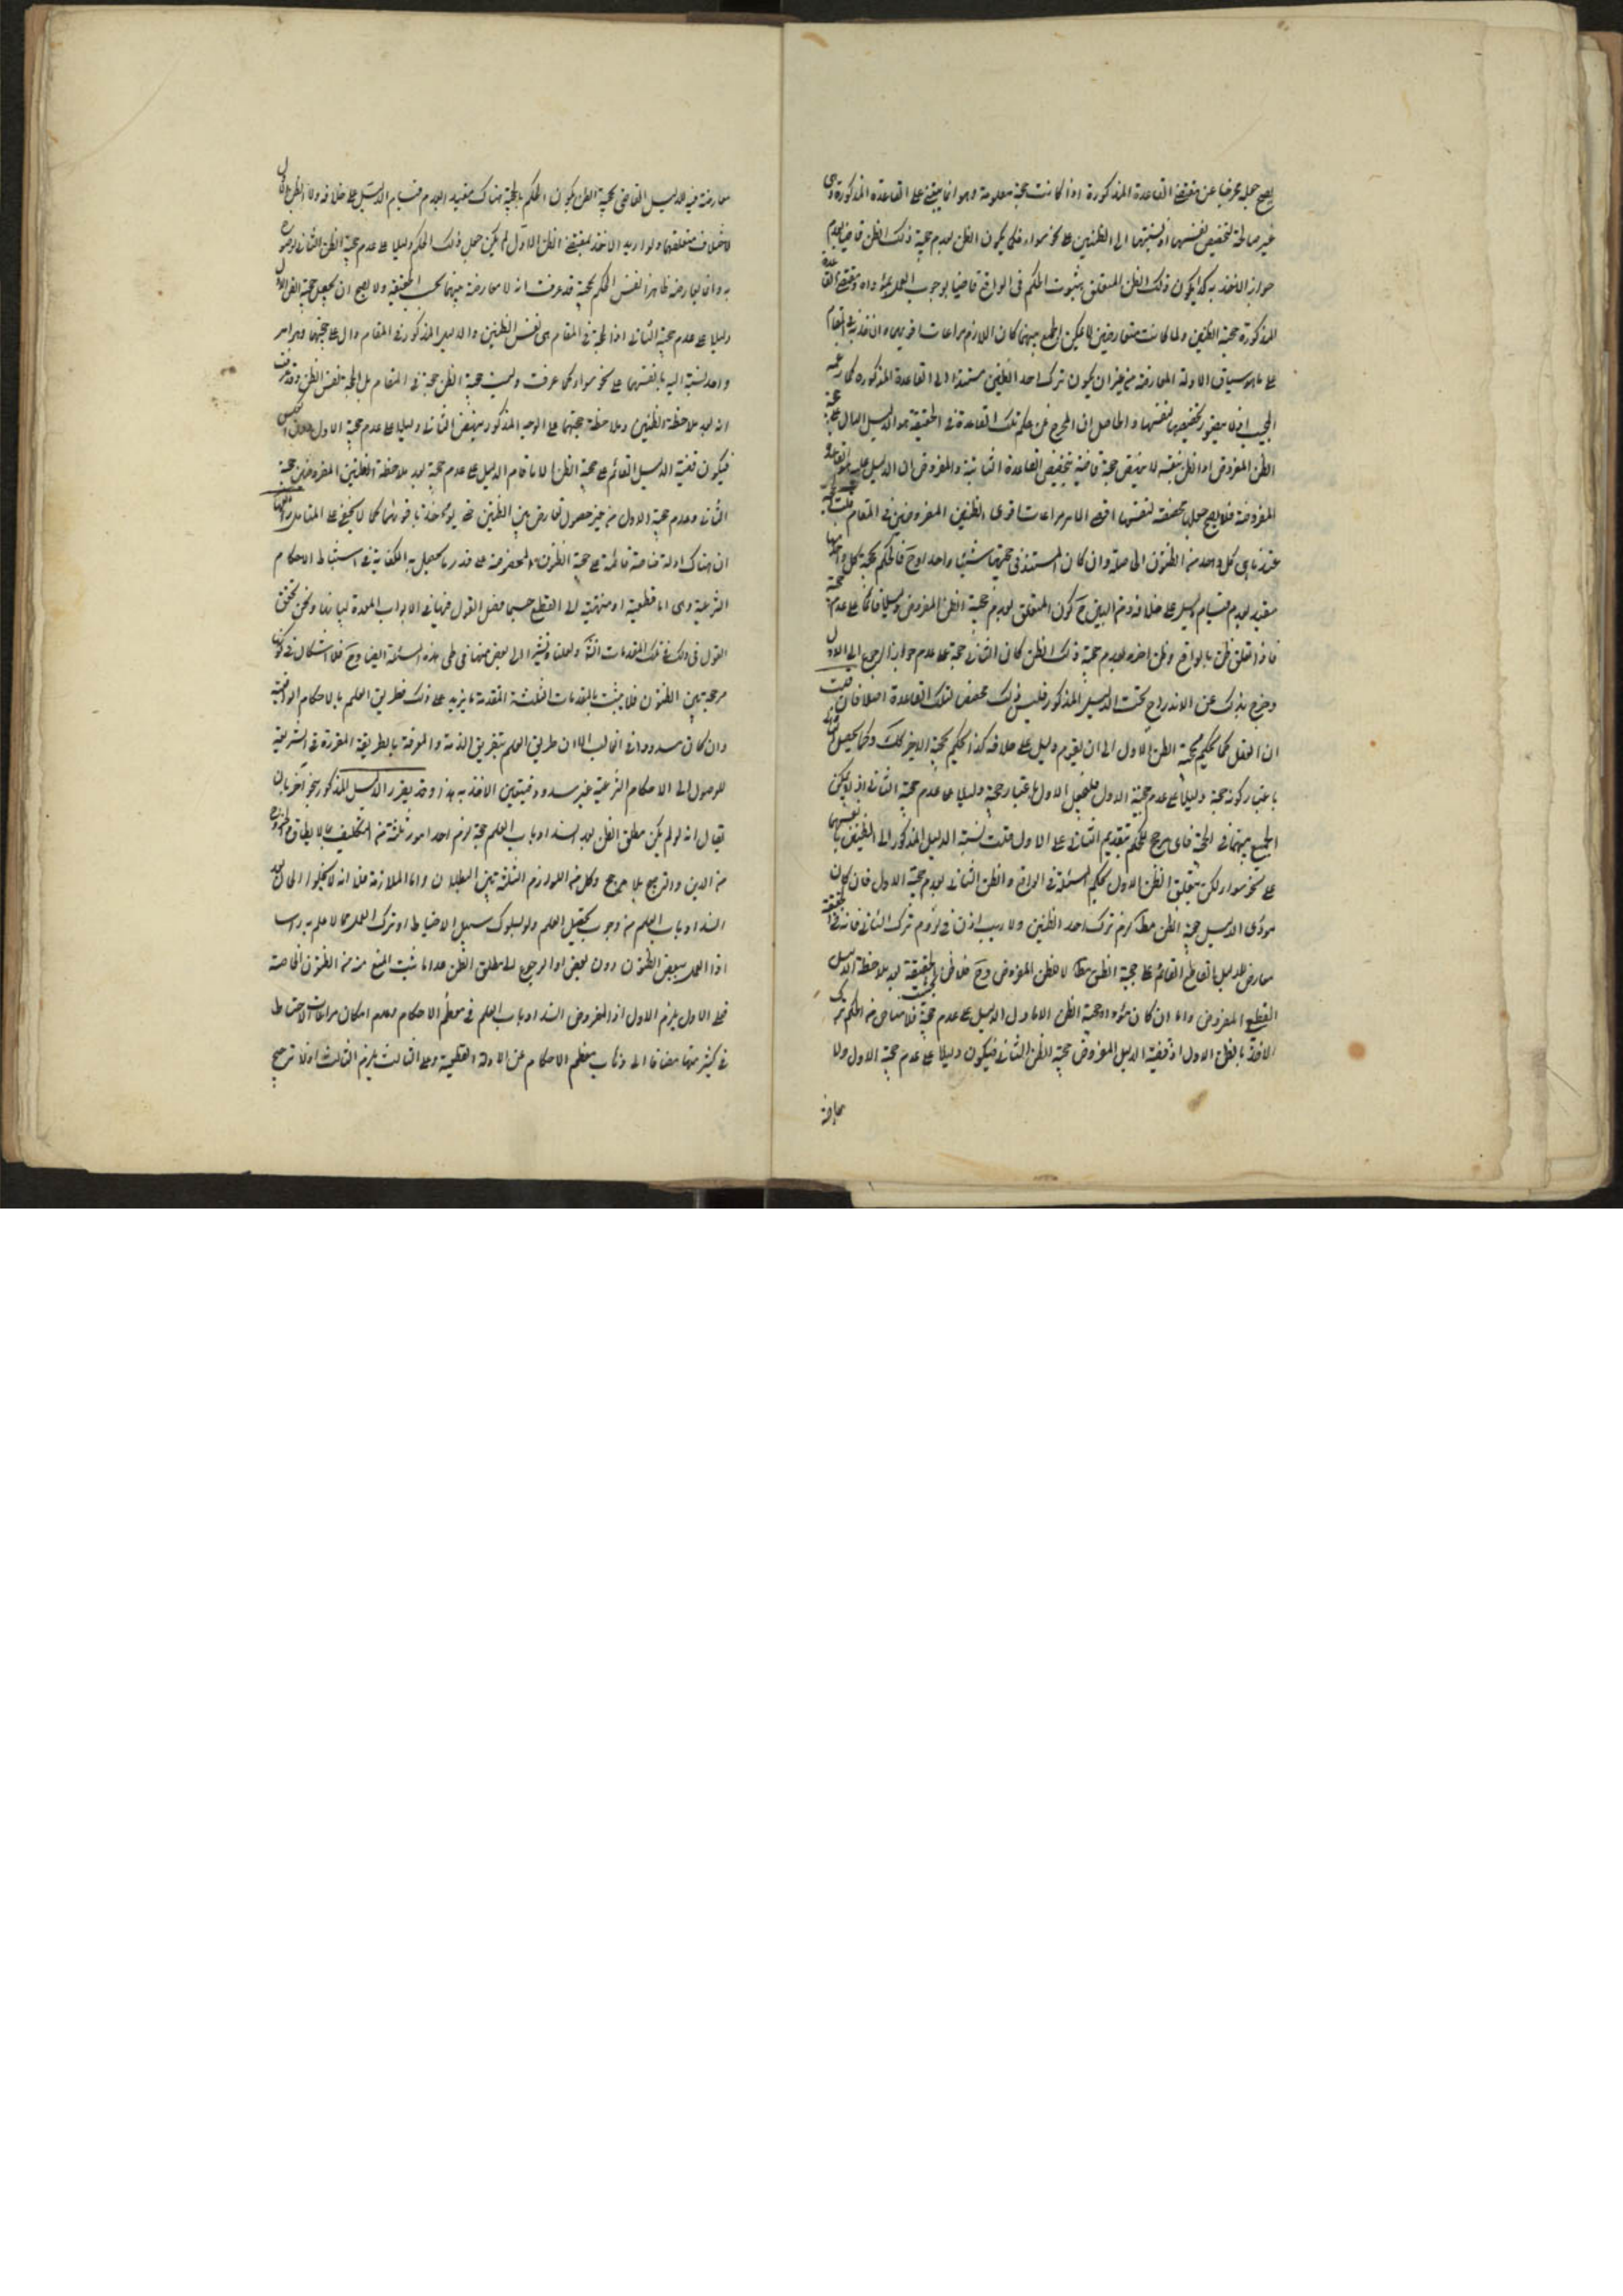 يصح جعله مخرجا عن مقتضى القاعدة المذكورة اذا كانت حجة معلومة وهو انما يبتنى على القاعدة المذكورة وهى
غير صالحة لتخصيص نفسها اذ نسبتها الى الظنين على نحو سواء فكما يكون الظن بعدم حجية ذلك الظن قاضيا بعدم
جواز الاخذ به كذا يكون ذلك الظن المتعلق بثبوت الحكم فى الواقع قاضيا بوجوب العمل بمؤداه ومقتضى القاعدة
المذكورة حجية الظنين ولما كانتا متعارضين لا يمكن الجمع بينهما كان اللازم مراعات اقويهما والاخذ به فى المقام
على ما هو سياق الادلة المتعارضة من غير ان يكون ترك احد الظنين مستندا الى القاعدة المذكورة كما زعمه
المجيب اذ لا يتصور تخصيصها لنفسها والحاصل ان المخرج عن حكم تلك القاعدة فى الحقيقة هو الدليل الدال على حجية
الظن المفروض اذ الظن بنفسه لا ينهض حجة قاضية بتخصيص القاعدة الثابتة والمفروض ان الدليل عليه هو القاعدة
المفروضة فلا يصح جعلها مخصصة لنفسها اقصى الامر مراعات اقوى الظنين المفروضين فى المقام قلت
الحجة عندنا هى كل واحد من الظنون الحاصلة وان كان المستند فى حجيتها شيئا واحدا وح فالحكم بحجية كل واحد منها
مقيد بعدم قيام دليل على خلافه ومن البين ح كون الظن المتعلق بعدم حجية الظن المفروض دليلا قائما على عدم حجية
فاذا تعلق ظن بالواقع وظن اخر بعدم حجية ذلك الظن كان الثانى حجة على عدم جواز الرجوع الى الاول
وخرج بذلك عن الاندراج تحت الدليل المذكور فليس ذلك مخصصا لتلك القاعدة اصلا فان قلت
ان العقل كما يحكم بحجية الظن الاول الى ان يقوم دليل على خلافه كذا يحكم بحجية الاخير كذلك وكما يجعل الثانى
باعتبار كونه حجة دليلا على عدم حجية الاول فليجعل الاول باعتبار حجيته دليلا على عدم حجية الثانى اذ لا يمكن
الجمع بينهما فى الحجية فاى مرجح للحكم بتقديم الثانى على الاول قلت نسبة الدليل المذكور الى الظنين بانفسهما
على نحو سواء لكن يتعلق الظن الاول بحكم المسئلة فى الواقع والظن الثانى بعدم حجية الاول فان كان
مؤدى الدليل حجية الظن مطلقا لزم ترك احد الظنين ولا ريب اذن فى لزوم ترك الثانى فانه فى الحقيقة
معارض للدليل القاطع القائم على حجية الظن مطلقا لا للظن المفروض وح فلا ظن بحسب الحقيقة بعد ملاحظة الدليل
القطعى المفروض واما ان كان مؤداه حجية الظن الا ما دل الدليل على عدم حجيته فلا مناص من الحكم بترك
الاخذ بالظن الاول اذ قضية الدليل المفروض حجية الظن الثانى فيكون دليلا على عدم حجية الاول ولا
معارضة
معارضة فيه للدليل القاضى بحجية الظن لكون الحكم بالحجية هناك مقيدا بعدم قيام الدليل على خلافه ولا للظن الاول
لاختلاف متعلقهما ولو اريد الاخذ بمقتضى الظن الاول لم يكن جعل ذلك الحكم دليلا على عدم حجية الظن الثانى لوضوح
دليلا على عدم حجية الثانى اذ الحجة فى المقام هى نفس الظنين والدليل المذكور فى المقام دال على حجيتهما وهو امر
واحد نسبته اليه بانفسهما على نحو سواء كما عرفت وليست حجية الظن حجة فى المقام بل الحجة نفس الظن وقد عرفت
انه بعد ملاحظة الظنين وملاحظة حجيتهما على الوجه المذكور ينهض الثانى دليلا على عدم حجية الاول دون العكس
فيكون قضية الدليل القائم على حجية الظن الا ما قام الدليل على عدم حجيته بعد ملاحظة الظنين المفروضين حجية
الثانى وعدم حجية الاول من غير حصول تعارض بين الظنين حتى يؤخذ باقويهما كما لا يخفى على المتامل
ان هناك ادلة خاصة قائمة على حجية الظنون المخصوصة على قدر ما يحصل به الكفاية فى استنباط الاحكام
الشرعية وهى اما قطعية او منتهية الى القطع حسبما فصل القول فيها فى الابواب المعدة لبيانها ونحن نحقق
القول فى ذلك فى تلك المقامات ولعلنا نشير الى بعض منها فى طى هذه المسئلة ايضا وح فلا اشكال فى كونها
مرجحة بين الظنون فلا يثبت بالمقدمات الثلثة المتقدمة ما يزيد على ذلك فطريق العلم بالاحكام الواقعية
وان كان مسدودا فى الغالب الا ان طريق العلم بتفريغ الذمة والمعرفة بالطريقة المقررة فى الشريعة
للوصول الى الاحكام الشرعية غير مسدود فيتعين الاخذ به هذا وقد يقرر الدليل المذكور بنحو آخر بان
يقال انه لو لم يكن مطلق الظن بعد انسداد باب العلم حجة لزم احد امور ثلثة من التكليف بما لا يطاق والخروج
من الدين والترجيح بلا مرجح وكل من اللوازم الثلثة بين البطلان واما الملازمة فلانه لا يخلو الحال بعد
انسداد باب العلم من وجوب تحصيل العلم ولو بسلوك سبيل الاحتياط او ترك العمل بما لا علم به راسا
او العمل ببعض الظنون دون بعض او الرجوع الى مطلق الظن عدا ما ثبت المنع منه من الظنون الخاصة
فعلى الاول يلزم الاول اذ المفروض انسداد باب العلم فى معظم الاحكام وعدم امكان مراعات الاحتياط
فى كثير منها مضافا الى ذهاب معظم الاحكام عن الادلة القطعية وعلى الثالث يلزم الثالث اذ لا ترجيح